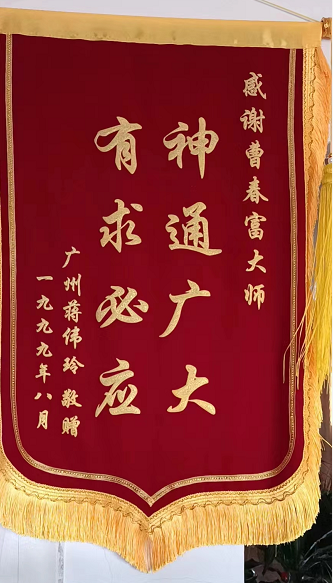 感谢曹春富大师
神通广大
有求必应
广州蒋伟玲 敬赠
一九九九年八月